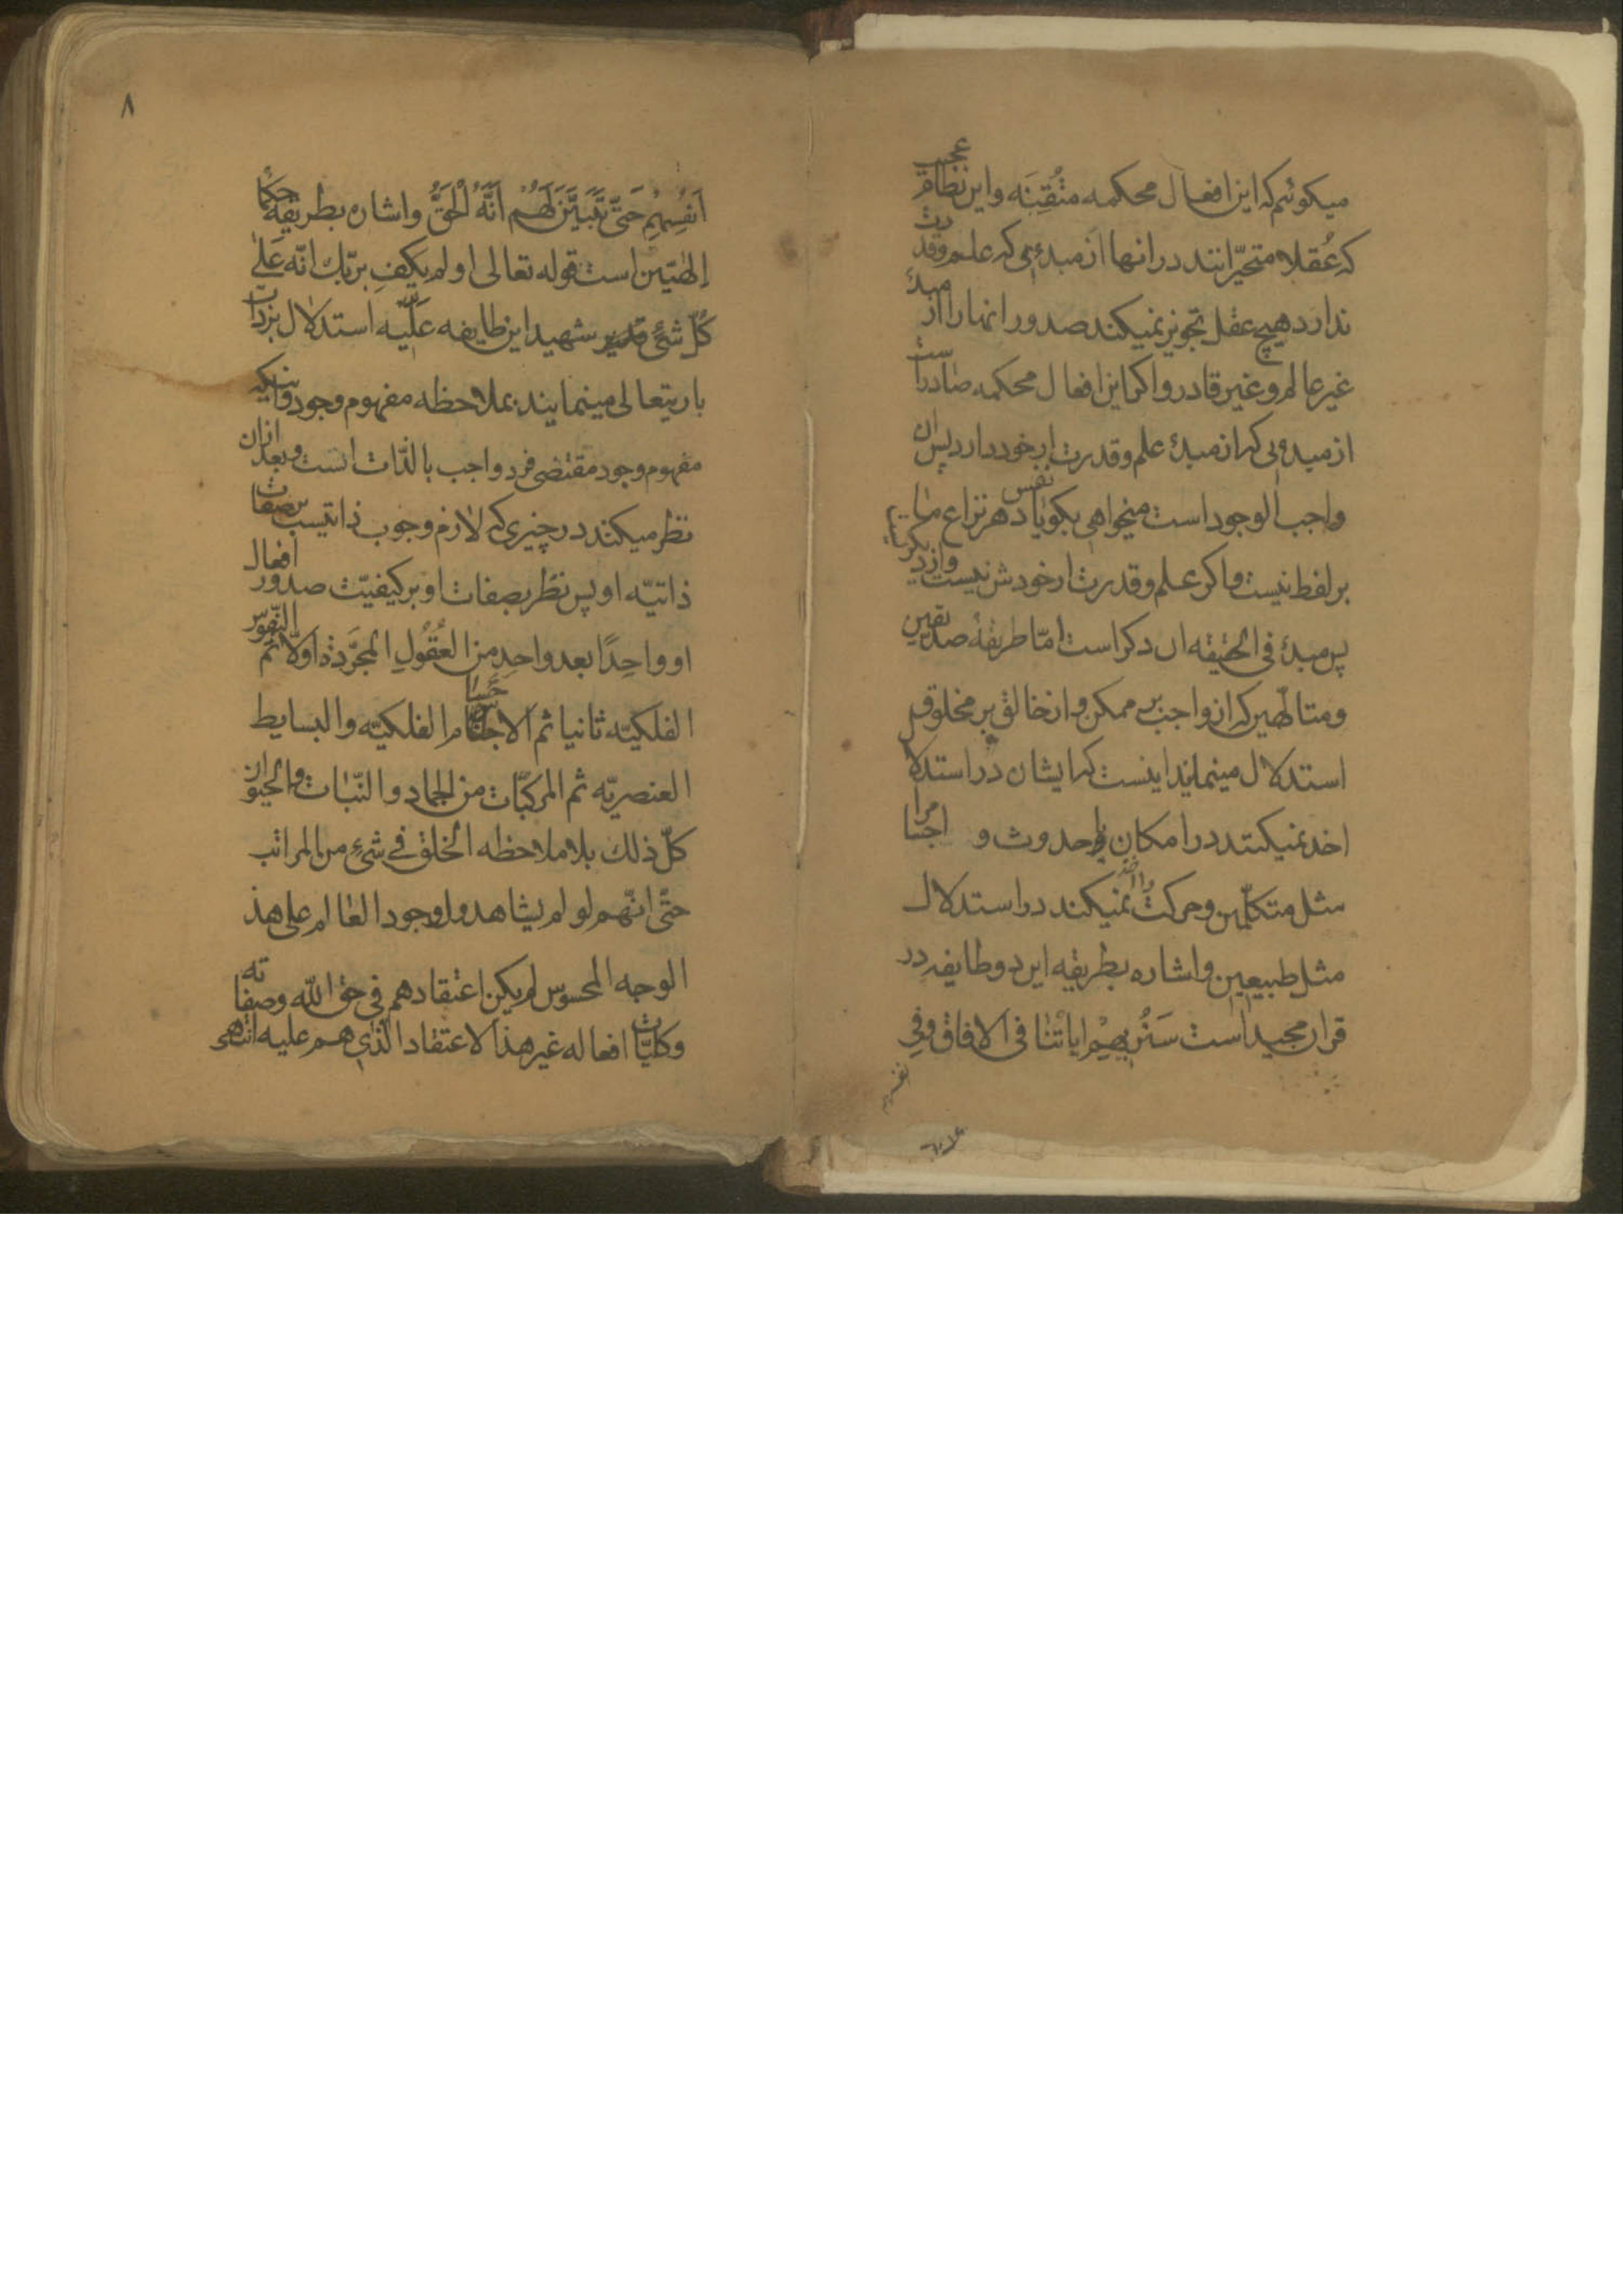 میکوئیم که این افعال محکمه متقِنَه و این نظام عجیب
که عُقلا متحیّرانند در انها از مبدءی که علم و قدرت
ندارد هیچ عقل تجویز نمیکند صدور انها را از مبدأ
غیر عالم و غیر قادر و اکر این افعال محکمه صادر است
از مبدءی که ان مبدأ علم و قدرت از خود دارد پس ان
واجب الوجود است میخواهی بکو یا دهر نزاع ما
بر لفظ نیست و اکر علم و قدرت از خودش نیست و از دیکریست
پس مبدأ فی الحقیقه ان دکر است امّا طریقهٔ صدیقین
و متالّهین که از واجب بر ممکن و از خالق بر مخلوق
استدلال مینمایند اینست که ایشان در استدلا
اخذ نمیکنند در امکان یا حدوث و اجسام را
مثل متکلّمین و حرکت را اخذ نمیکند در استدلال
مثل طبیعیین و اشاره بطریقه این دو طایفه در
قران مجید است سَنُریهِمْ ایاتنا فی الافاق وفی
انفسهم
۸
اَنفُسِهِمِ حَتّی یَتَبَیَّنَ لَهُمْ اَنَّهُ الْحَقُّ و اشاره بطریقه حکما
الهٰیّین است قوله تعالی اولم یکفِ بربّک انّه عَلیٰ
کُلّ شئ قدیر شهید این طایفه عَلّیه استدلال بر ذات
باریتعالی مینمایند بملاحظه مفهوم وجود و اینکه
مفهوم وجود مقتضی فرد واجب بالذّات است و بعد ازان
نظر میکنند در چیزی که لازم وجوب ذاتیست بر صفات
ذاتیّه او پس نظر بصفات او بر کیفیّت صدور افعال
او واحِدًا بعد واحِدٍ من العُقُولِ المُجَرَّدَة اولّا ثمّ النّفوس
الفلکیّه ثانیا ثم الاجسام الفلکیّه والبسایط
العنصریّه ثم المرکّبات من الجماد والنّبات والحیوان
کلّ ذلک بلا ملاحظه الخلق فی شئ من المراتب
حتّی انّهم لو لم یشاهدوا وجود العالم علی هذ
الوجه المحسوس لم یکن اعتقادهم فی حق اللّه وصفاته
وکلیّات افعاله غیر هذا لاعتقاد الّذی هم علیه انتهی